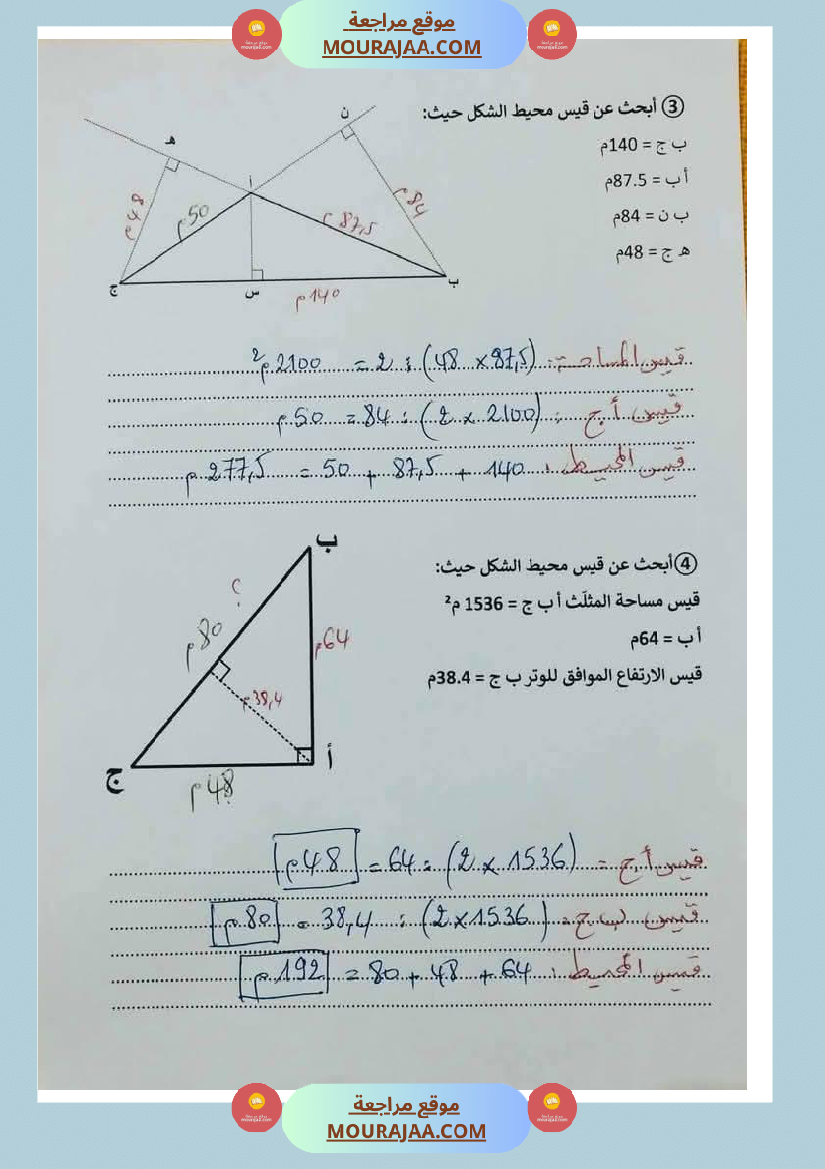 موقع مراجعة
MOURAJAA.COM
③ أبحث عن قيس محيط الشكل حيث:
ب ج = 140م
أ ب = 87.5م
ب ن = 84م
هـ ج = 48م
ن
هـ
أ
48م
50م
87,5م
84م
ج
س
ب
140م
قيس المساحة: (87,5 × 48) : 2 = 2100 م²
قيس أ ج : (2100 × 2) : 84 = 50 م
قيس المحيط : 140 + 87,5 + 50 = 277,5 م
④ أبحث عن قيس محيط الشكل حيث:
قيس مساحة المثلّث أ ب ج = 1536 م²
أ ب = 64م
قيس الارتفاع الموافق للوتر ب ج = 38.4م
ب
؟
80م
64م
38,4م
أ
ج
48م
قيس أ ج = (1536 × 2) : 64 = 48 م
قيس ب ج = (1536 × 2) : 38,4 = 80 م
قيس المحيط : 64 + 48 + 80 = 192 م
موقع مراجعة
MOURAJAA.COM